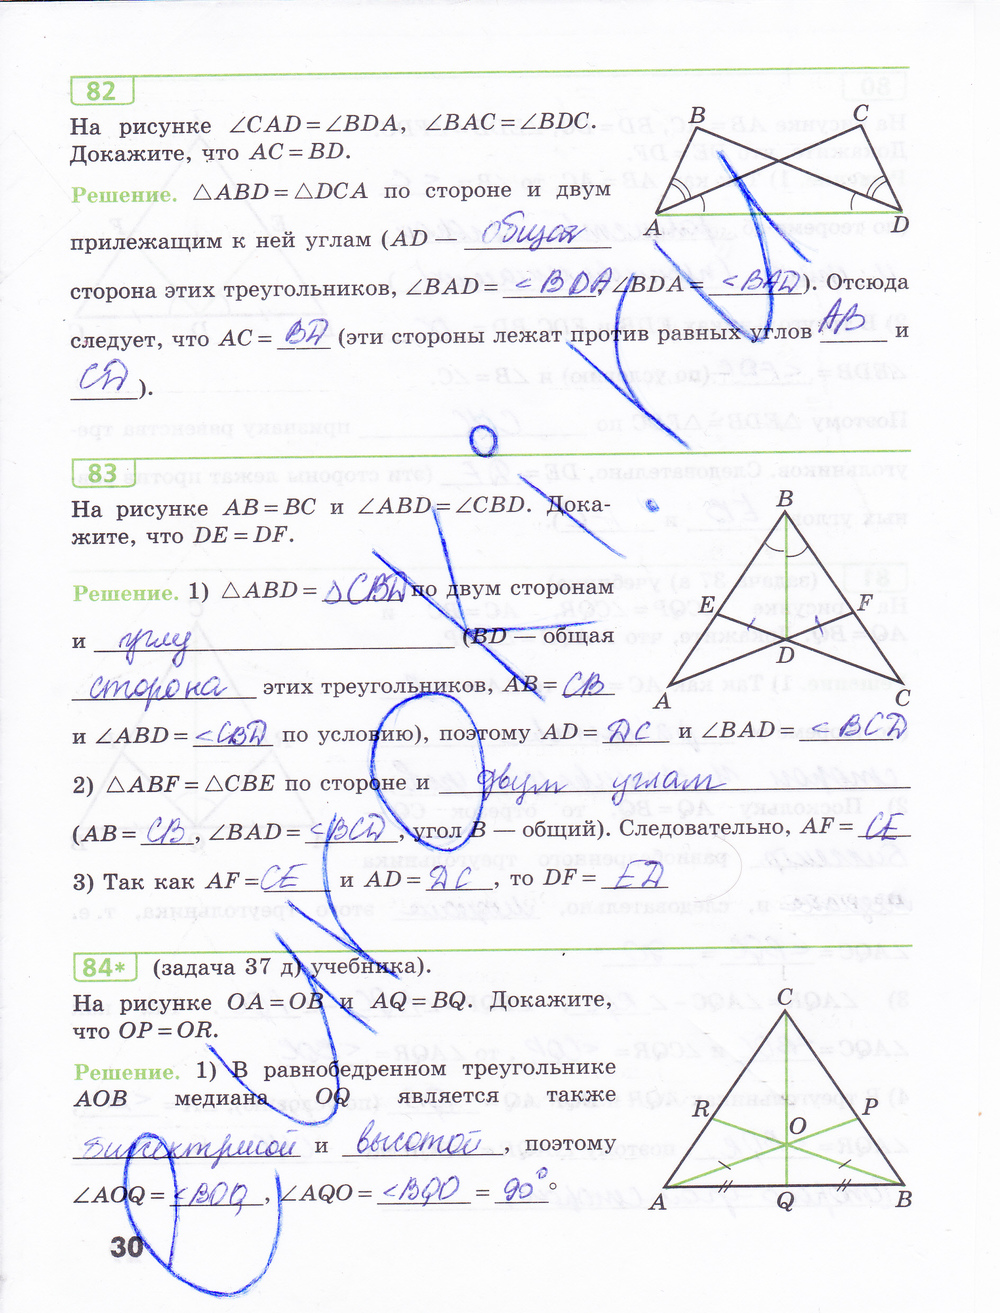 82
На рисунке ∠CAD = ∠BDA, ∠BAC = ∠BDC.
Докажите, что AC = BD.
Решение. △ABD = △DCA по стороне и двум
прилежащим к ней углам (AD — общая
сторона этих треугольников, ∠BAD = <BDA, ∠BDA = <BAD). Отсюда
следует, что AC = BD (эти стороны лежат против равных углов AB и
CD).
B
C
A
D
83
На рисунке AB = BC и ∠ABD = ∠CBD. Дока-
жите, что DE = DF.
Решение. 1) △ABD = △CBD по двум сторонам
и углу (BD — общая
сторона этих треугольников, AB = CB
и ∠ABD = <CBD по условию), поэтому AD = DC и ∠BAD = <BCD
2) △ABF = △CBE по стороне и двум углам
(AB = CB, ∠BAD = <BCD, угол B — общий). Следовательно, AF = CE
3) Так как AF = CE и AD = DC, то DF = ED
B
E
F
D
A
C
84* (задача 37 д) учебника).
На рисунке OA = OB и AQ = BQ. Докажите,
что OP = OR.
Решение. 1) В равнобедренном треугольнике
AOB медиана OQ является также
биссектрисой и высотой, поэтому
∠AOQ = <BOQ, ∠AQO = <BQO = 90°°
C
R
P
O
A
Q
B
30